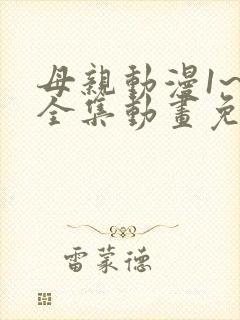 母親動漫1~
全集動畫免
雷蒙德